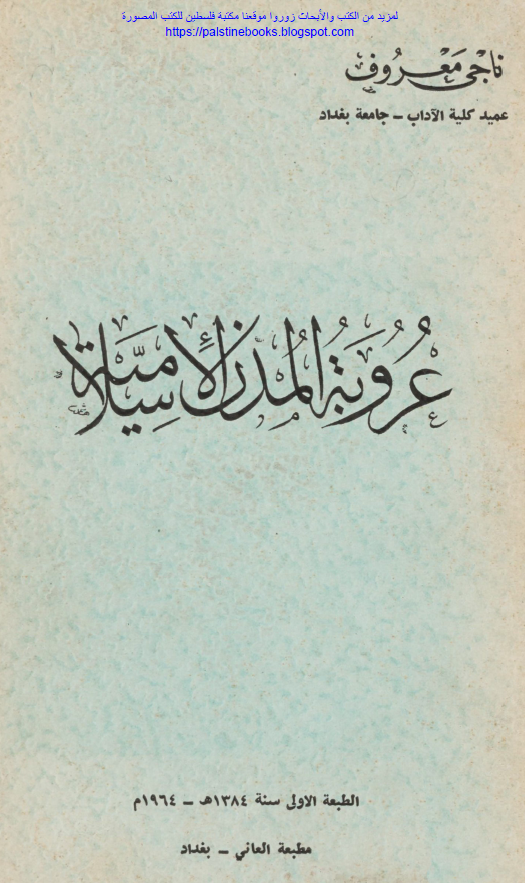 لمزيد من الكتب والأبحاث زوروا موقعنا مكتبة فلسطين للكتب المصورة
https://palstinebooks.blogspot.com
ناجي معروف
عميد كلية الآداب - جامعة بغداد
عروبة المدن الإسلامية
الطبعة الاولى سنة ١٣٨٤هـ - ١٩٦٤م
مطبعة العاني - بغداد